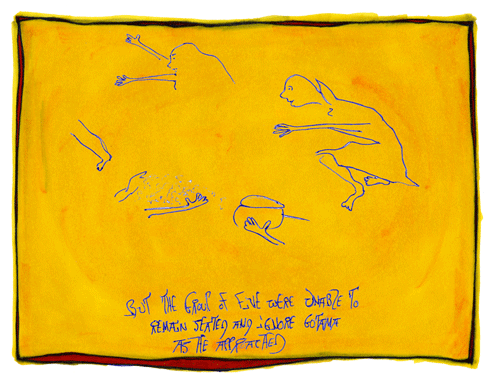 BUT THE GROUP OF FIVE WERE UNABLE TO
REMAIN SEATED AND IGNORE GOTAMA
AS HE APPROACHED